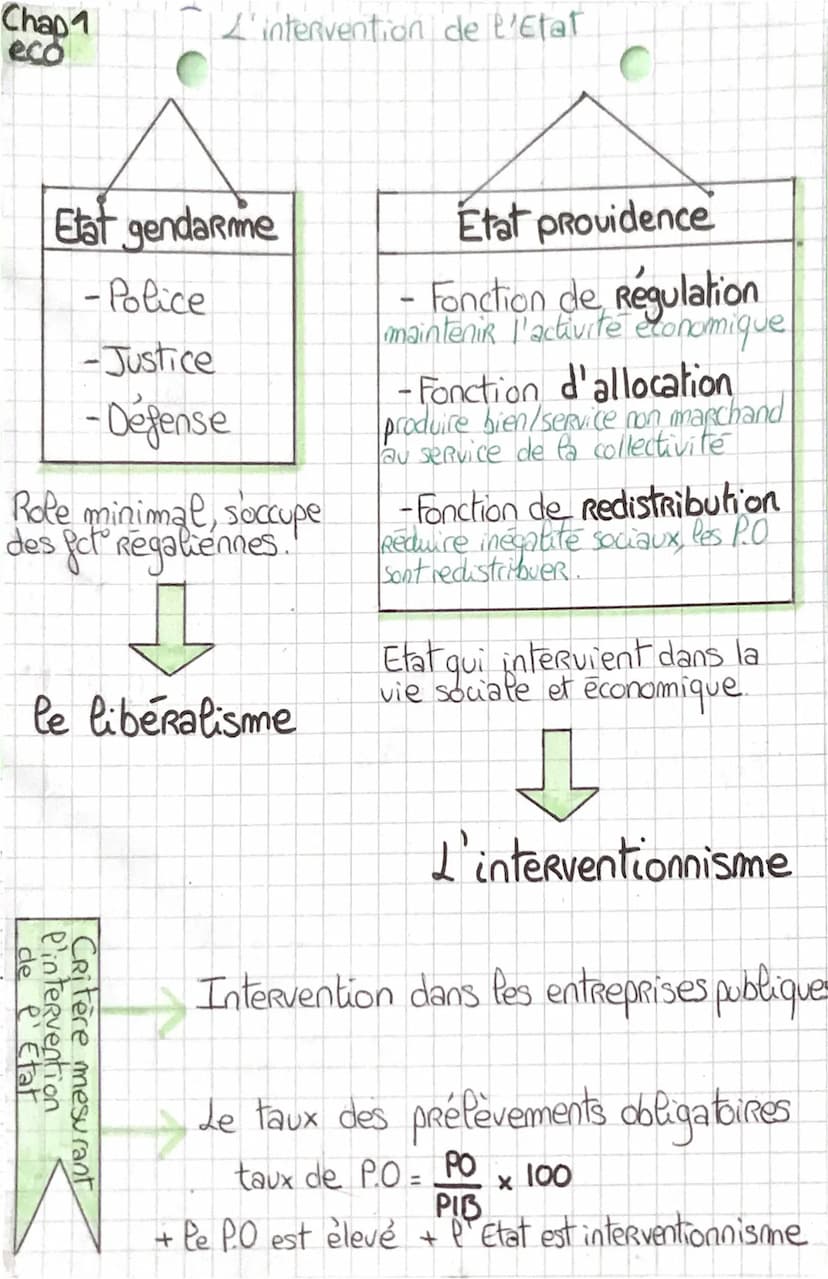 Chap 1
eco
L'intervention de l'Etat
Etat gendarme
- Police
- Justice
- Défense
Role minimal, s'occupe
des fct° Régaliennes.
le libéralisme
Etat providence
- Fonction de Régulation
maintenir l'activité économique
- Fonction d'allocation
produire bien/service non marchand
au service de la collectivité
- Fonction de Redistribution
Réduire inégalité sociaux, les P.O
sont redistribuer.
Etat qui intervient dans la
vie sociale et économique.
L'interventionnisme
Critère mesurant
l'intervention
de l'Etat
Intervention dans les entreprises publiques
Le taux des prélèvements obligatoires
taux de P.O = PO / PIB x 100
+ le P.O est èlevé + l'Etat est interventionnisme